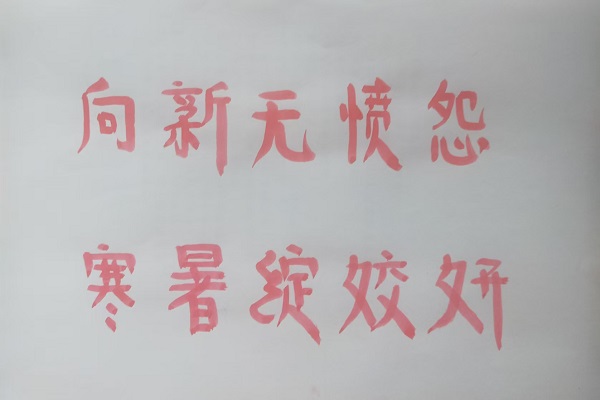 向新无愤怨
寒暑绽姣妍